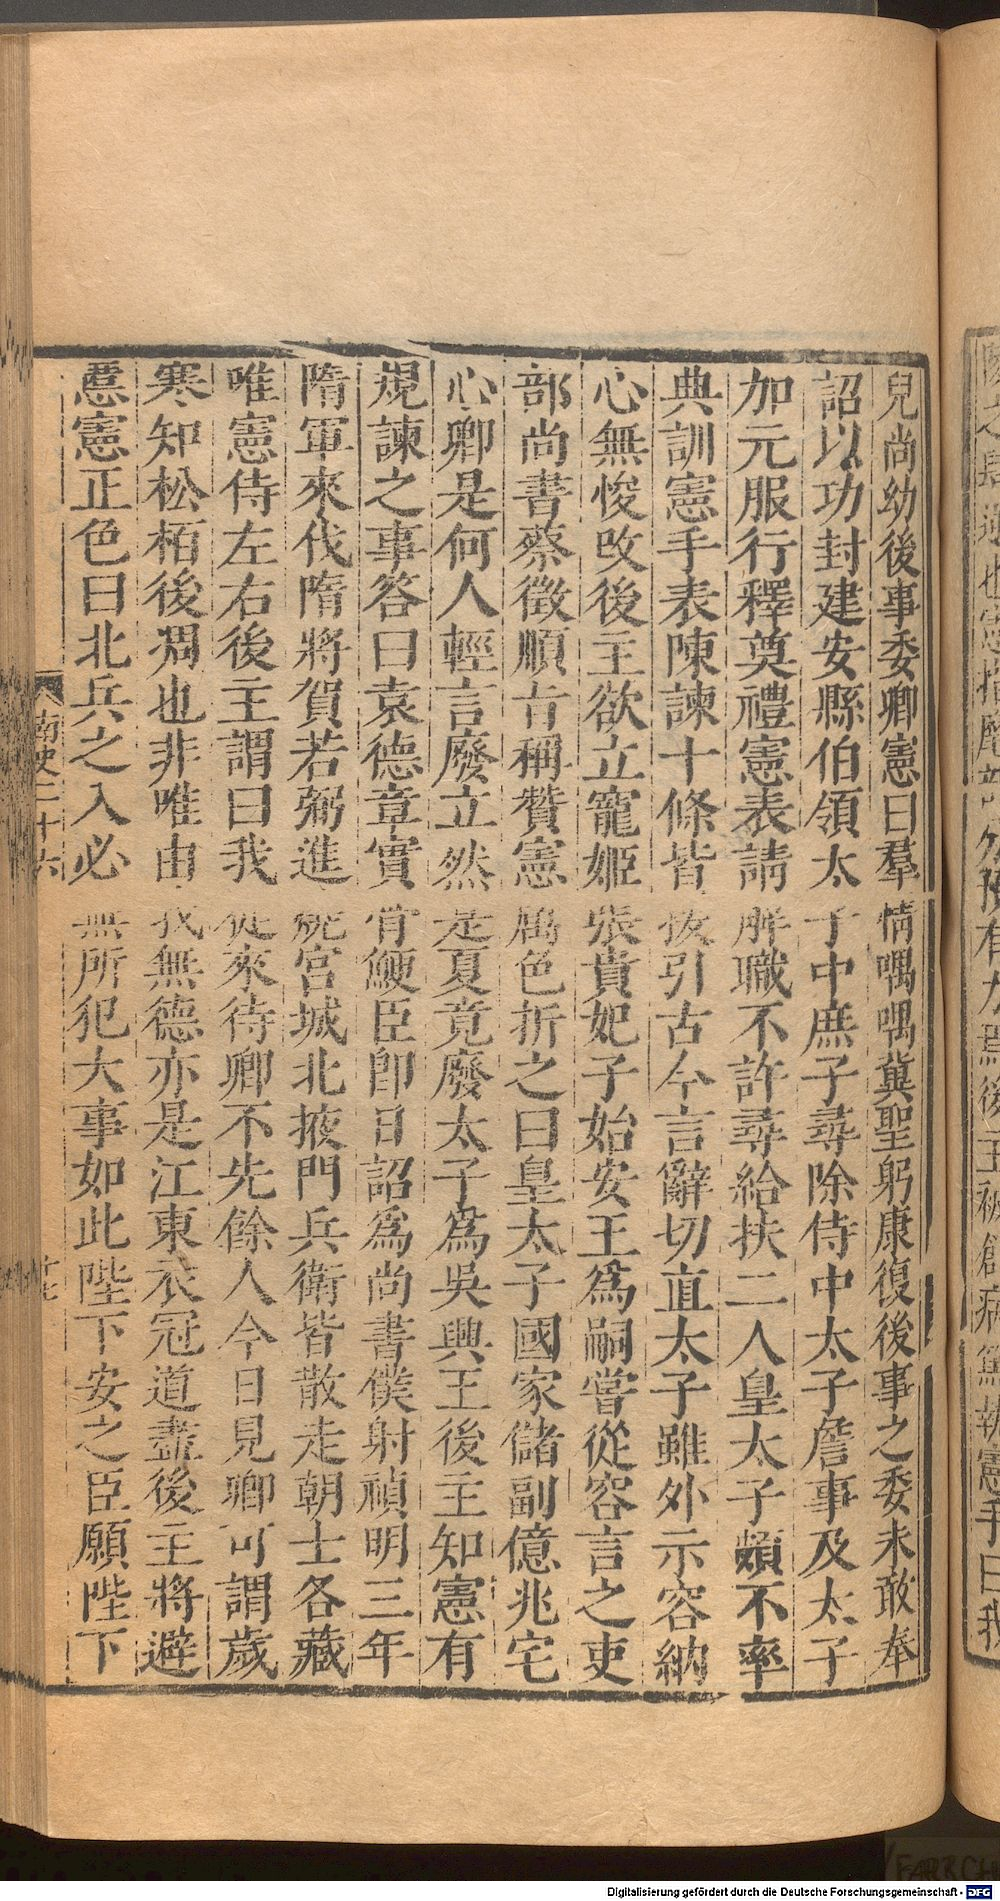 兒尚幼後事委卿憲曰羣情喁喁冀聖躬康復後事之委未敢奉
詔以功封建安縣伯領太子中庶子尋除侍中太子詹事及太子
加元服行釋奠禮憲表請解職不許尋給扶二人皇太子頗不率
典訓憲手表陳諫十條皆援引古今言辭切直太子雖外示容納
心無悛改後主欲立寵姬張貴妃子始安王爲嗣嘗從容言之吏
部尚書蔡徵順旨稱贊憲厲色折之曰皇太子國家儲副億兆宅
心卿是何人輕言廢立然是夏竟廢太子爲吳興王後主知憲有
規諫之事答曰袁德章實骨鯁臣卽日詔爲尚書僕射禎明三年
隋軍來伐隋將賀若弼進燒宮城北掖門兵衛皆散走朝士各藏
唯憲侍左右後主謂曰我從來待卿不先餘人今日見卿可謂歲
寒知松栢後凋也非唯由我無德亦是江東衣冠道盡後主將避
慝憲正色曰北兵之入必無所犯大事如此陛下安之臣願陛下
南史二十六
十七
Digitalisierung gefördert durch die Deutsche Forschungsgemeinschaft - DFG